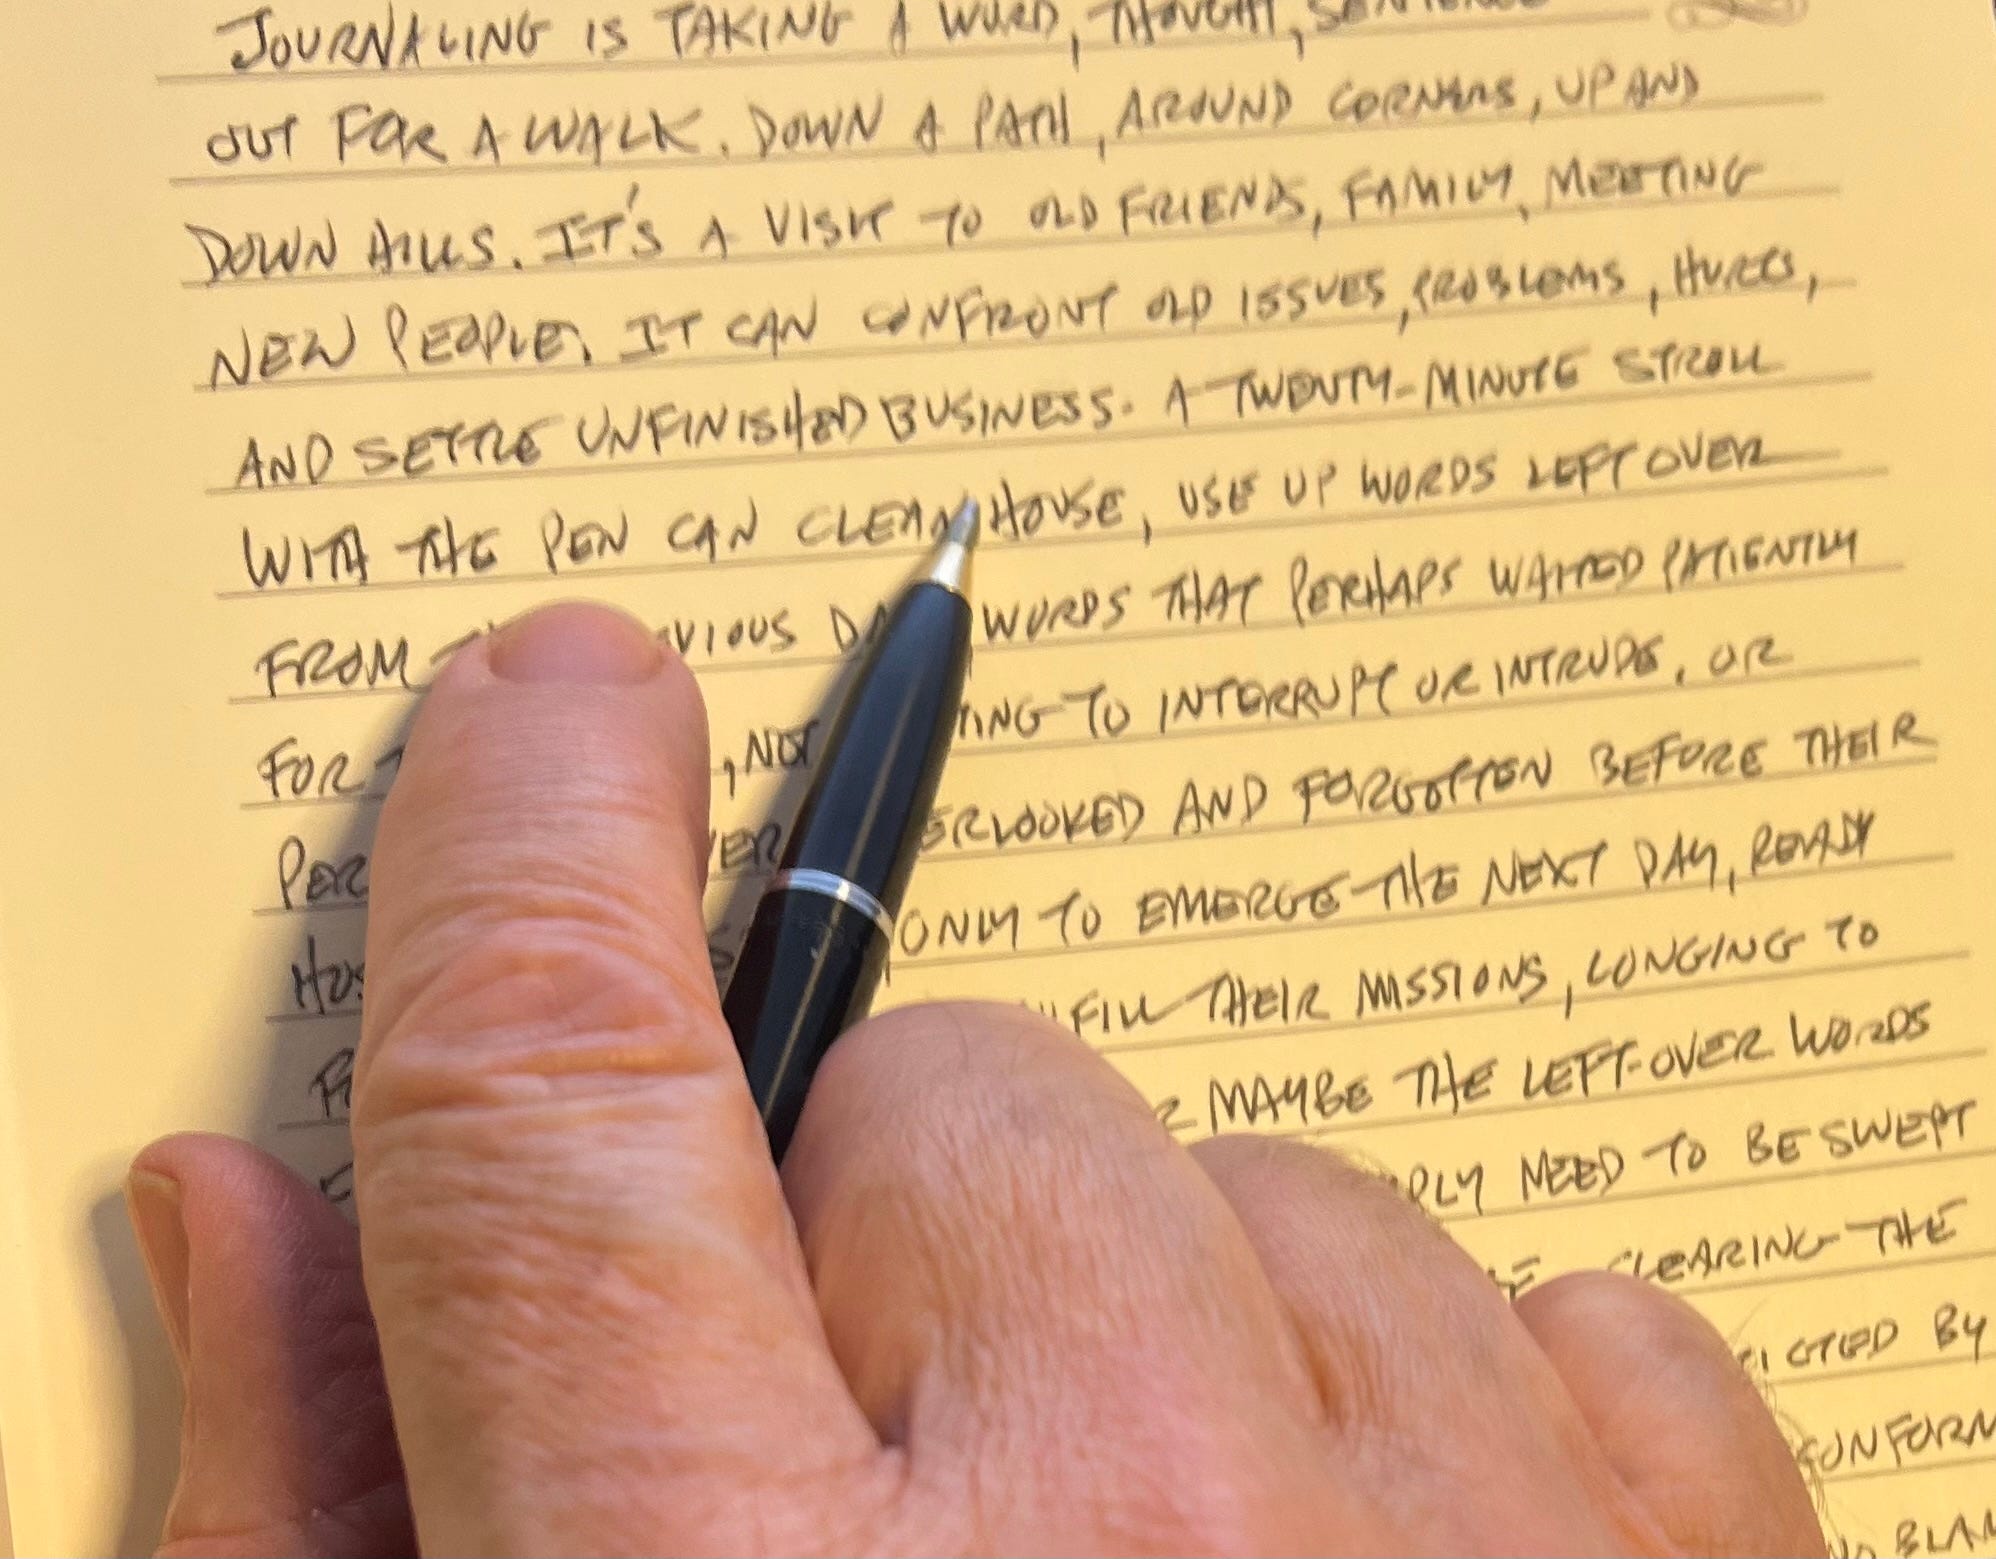 JOURNALING IS TAKING A WORD, THOUGHT, SENTENCE
OUT FOR A WALK. DOWN A PATH, AROUND CORNERS, UP AND
DOWN HILLS. IT'S A VISIT TO OLD FRIENDS, FAMILY, MEETING
NEW PEOPLE. IT CAN CONFRONT OLD ISSUES, PROBLEMS, HURTS,
AND SETTLE UNFINISHED BUSINESS. A TWENTY-MINUTE STROLL
WITH THE PEN CAN CLEAN HOUSE, USE UP WORDS LEFT OVER
FROM WORDS THAT PERHAPS WAITED PATIENTLY
FOR , NOT TO INTERRUPT OR INTRUDE, OR
AND FORGOTTEN BEFORE THEIR
ONLY TO EMERGE THE NEXT DAY, READY
THEIR MISSIONS, LONGING TO
MAYBE THE LEFT-OVER WORDS
NEED TO BE SWEPT
CLEARING THE
BY